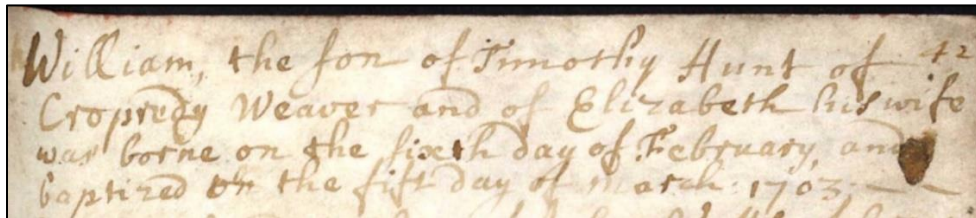 William, the son of Timothy Hunt of 42
Cropredy Weaver and of Elizabeth his wife
was borne on the sixth day of February, and
baptized on the fift day of march: 1703.